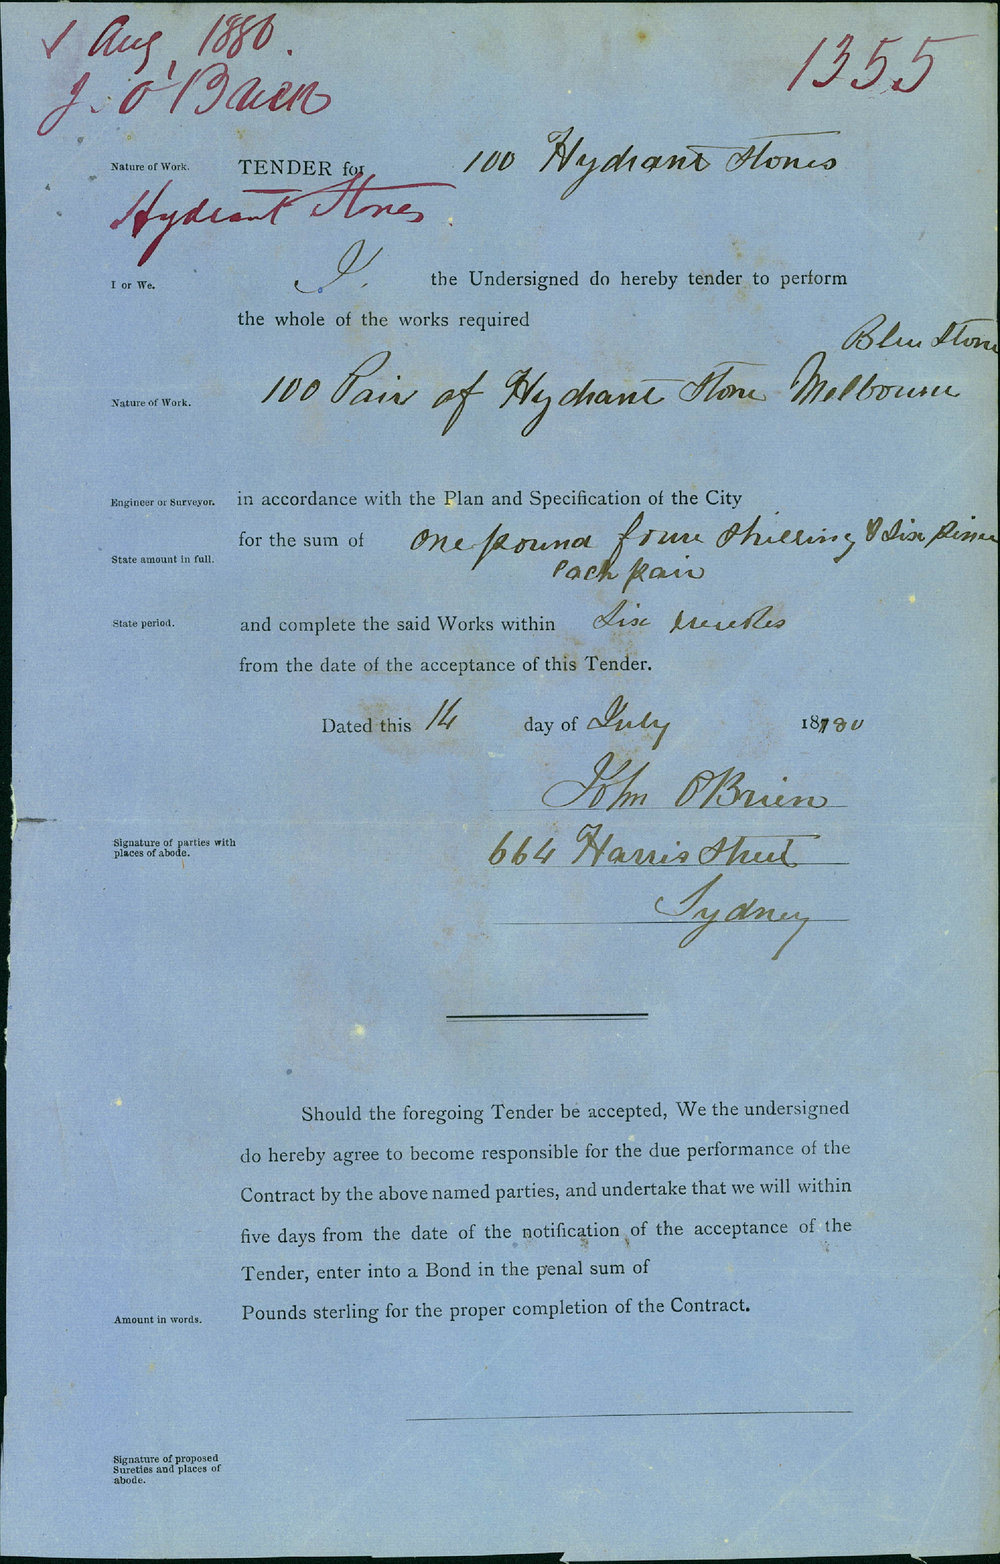 Aug 1880.
J. O'Brien
1355
Nature of Work. TENDER for 100 Hydrant Stones
Hydrant Stones
I or We. I. the Undersigned do hereby tender to perform
the whole of the works required
Blue Stone
Nature of Work. 100 Pair of Hydrant Stone Melbourne
Engineer or Surveyor. in accordance with the Plan and Specification of the City
for the sum of one pound four Shilling & Six
State amount in full. each pair
State period. and complete the said Works within Six weekes
from the date of the acceptance of this Tender.
Dated this 14 day of July 18780
John OBrien
Signature of parties with
places of abode.
664 Harris Street
Sydney
Should the foregoing Tender be accepted, We the undersigned
do hereby agree to become responsible for the due performance of the
Contract by the above named parties, and undertake that we will within
five days from the date of the notification of the acceptance of the
Tender, enter into a Bond in the penal sum of
Amount in words. Pounds sterling for the proper completion of the Contract.
Signature of proposed
Sureties and places of
abode.